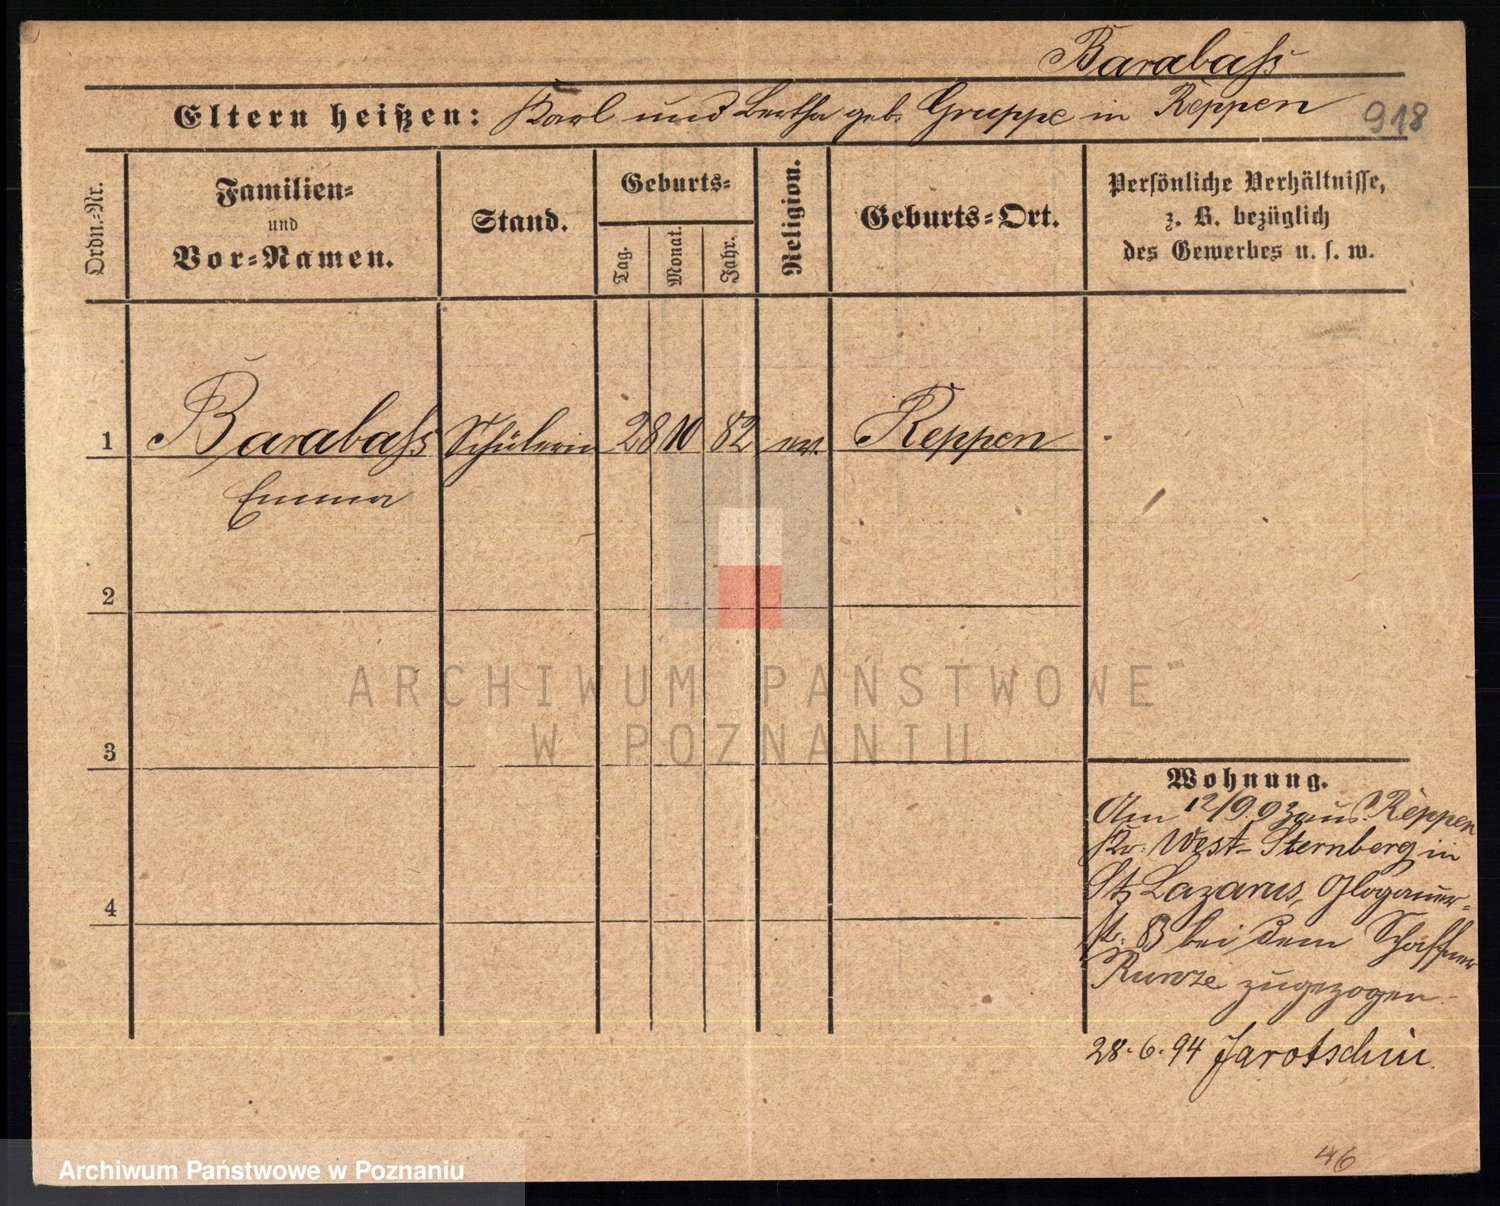 Barabaß
Eltern heißen: Karl und Bertha geb. Gruppe in Reppen 918
Ordn.-Nr.
Familien-
und
Vor-Namen.
Stand.
Geburts-
Tag.
Monat.
Jahr.
Religion.
Geburts-Ort.
Persönliche Verhältnisse,
z. B. bezüglich
des Gewerbes u. s. w.
1 Barabaß Schülerin 28 10 82 ev. Reppen
Emma
2
3
4
Wohnung.
Am 12/9. 93 aus Reppen
Kr. West-Sternberg in
St. Lazarus, Glogauer-
str. 83 bei dem Schaffner
zugezogen.
28.6.94 Jarotschin.
46
ARCHIWUM PAŃSTWOWE
W POZNANIU
Archiwum Państwowe w Poznaniu